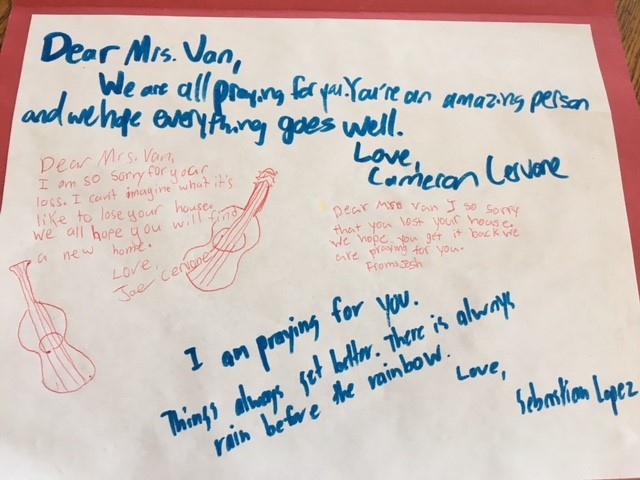 Dear Mrs. Van,
We are all praying for you. You're an amazing person
and we hope everything goes well.
Love,
Cameron Cervone
Dear Mrs. Van,
I am so sorry for your
loss. I cant imagine what it's
like to lose your house.
We all hope you will find
a new home.
Love,
Joe Cervone
Dear Mrs Van I so sorry
that you lost your house.
We hope you get it back we
are praying for you.
From: Josh
I am praying for you.
Things always get better. There is always
rain before the rainbow.
Love,
Sebastian Lopez